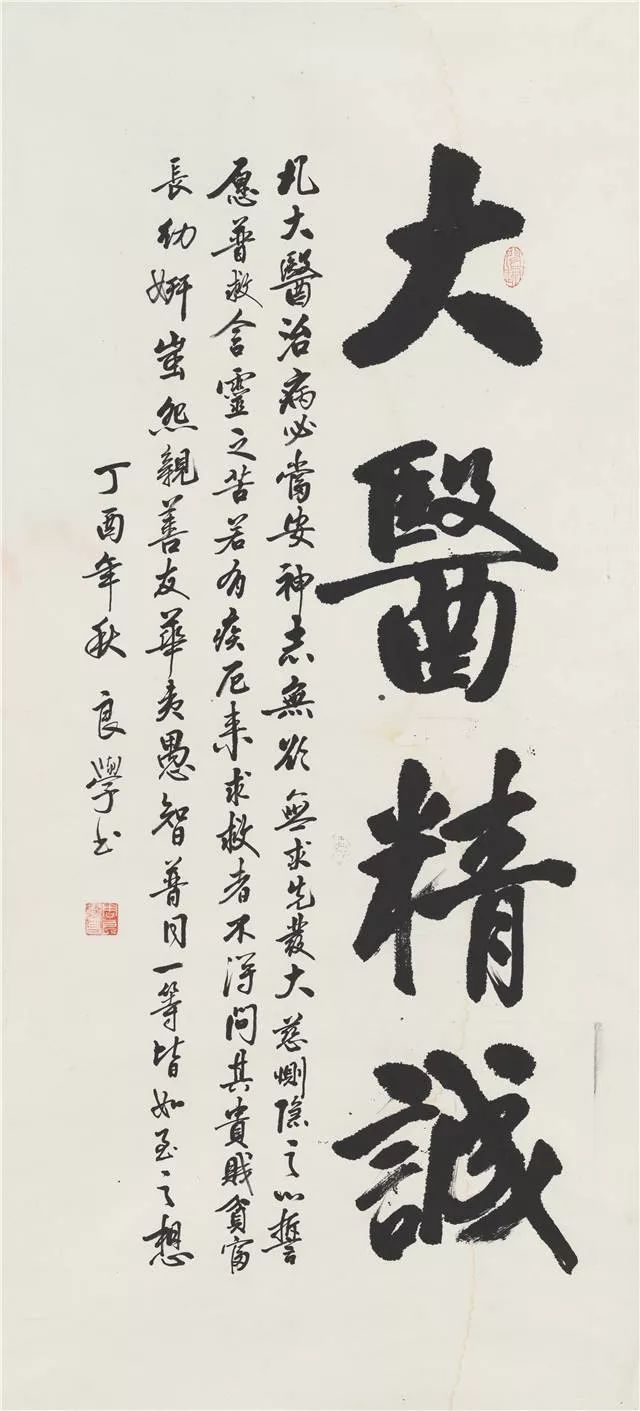 大醫精誠
凡大醫治病必當安神志無欲無求先發大慈惻隱之心誓
愿普救含靈之苦若有疾厄来求救者不得問其貴賤貧富
長幼妍蚩怨親善友華夷愚智普同一等皆如至之想
丁酉年秋 良學书